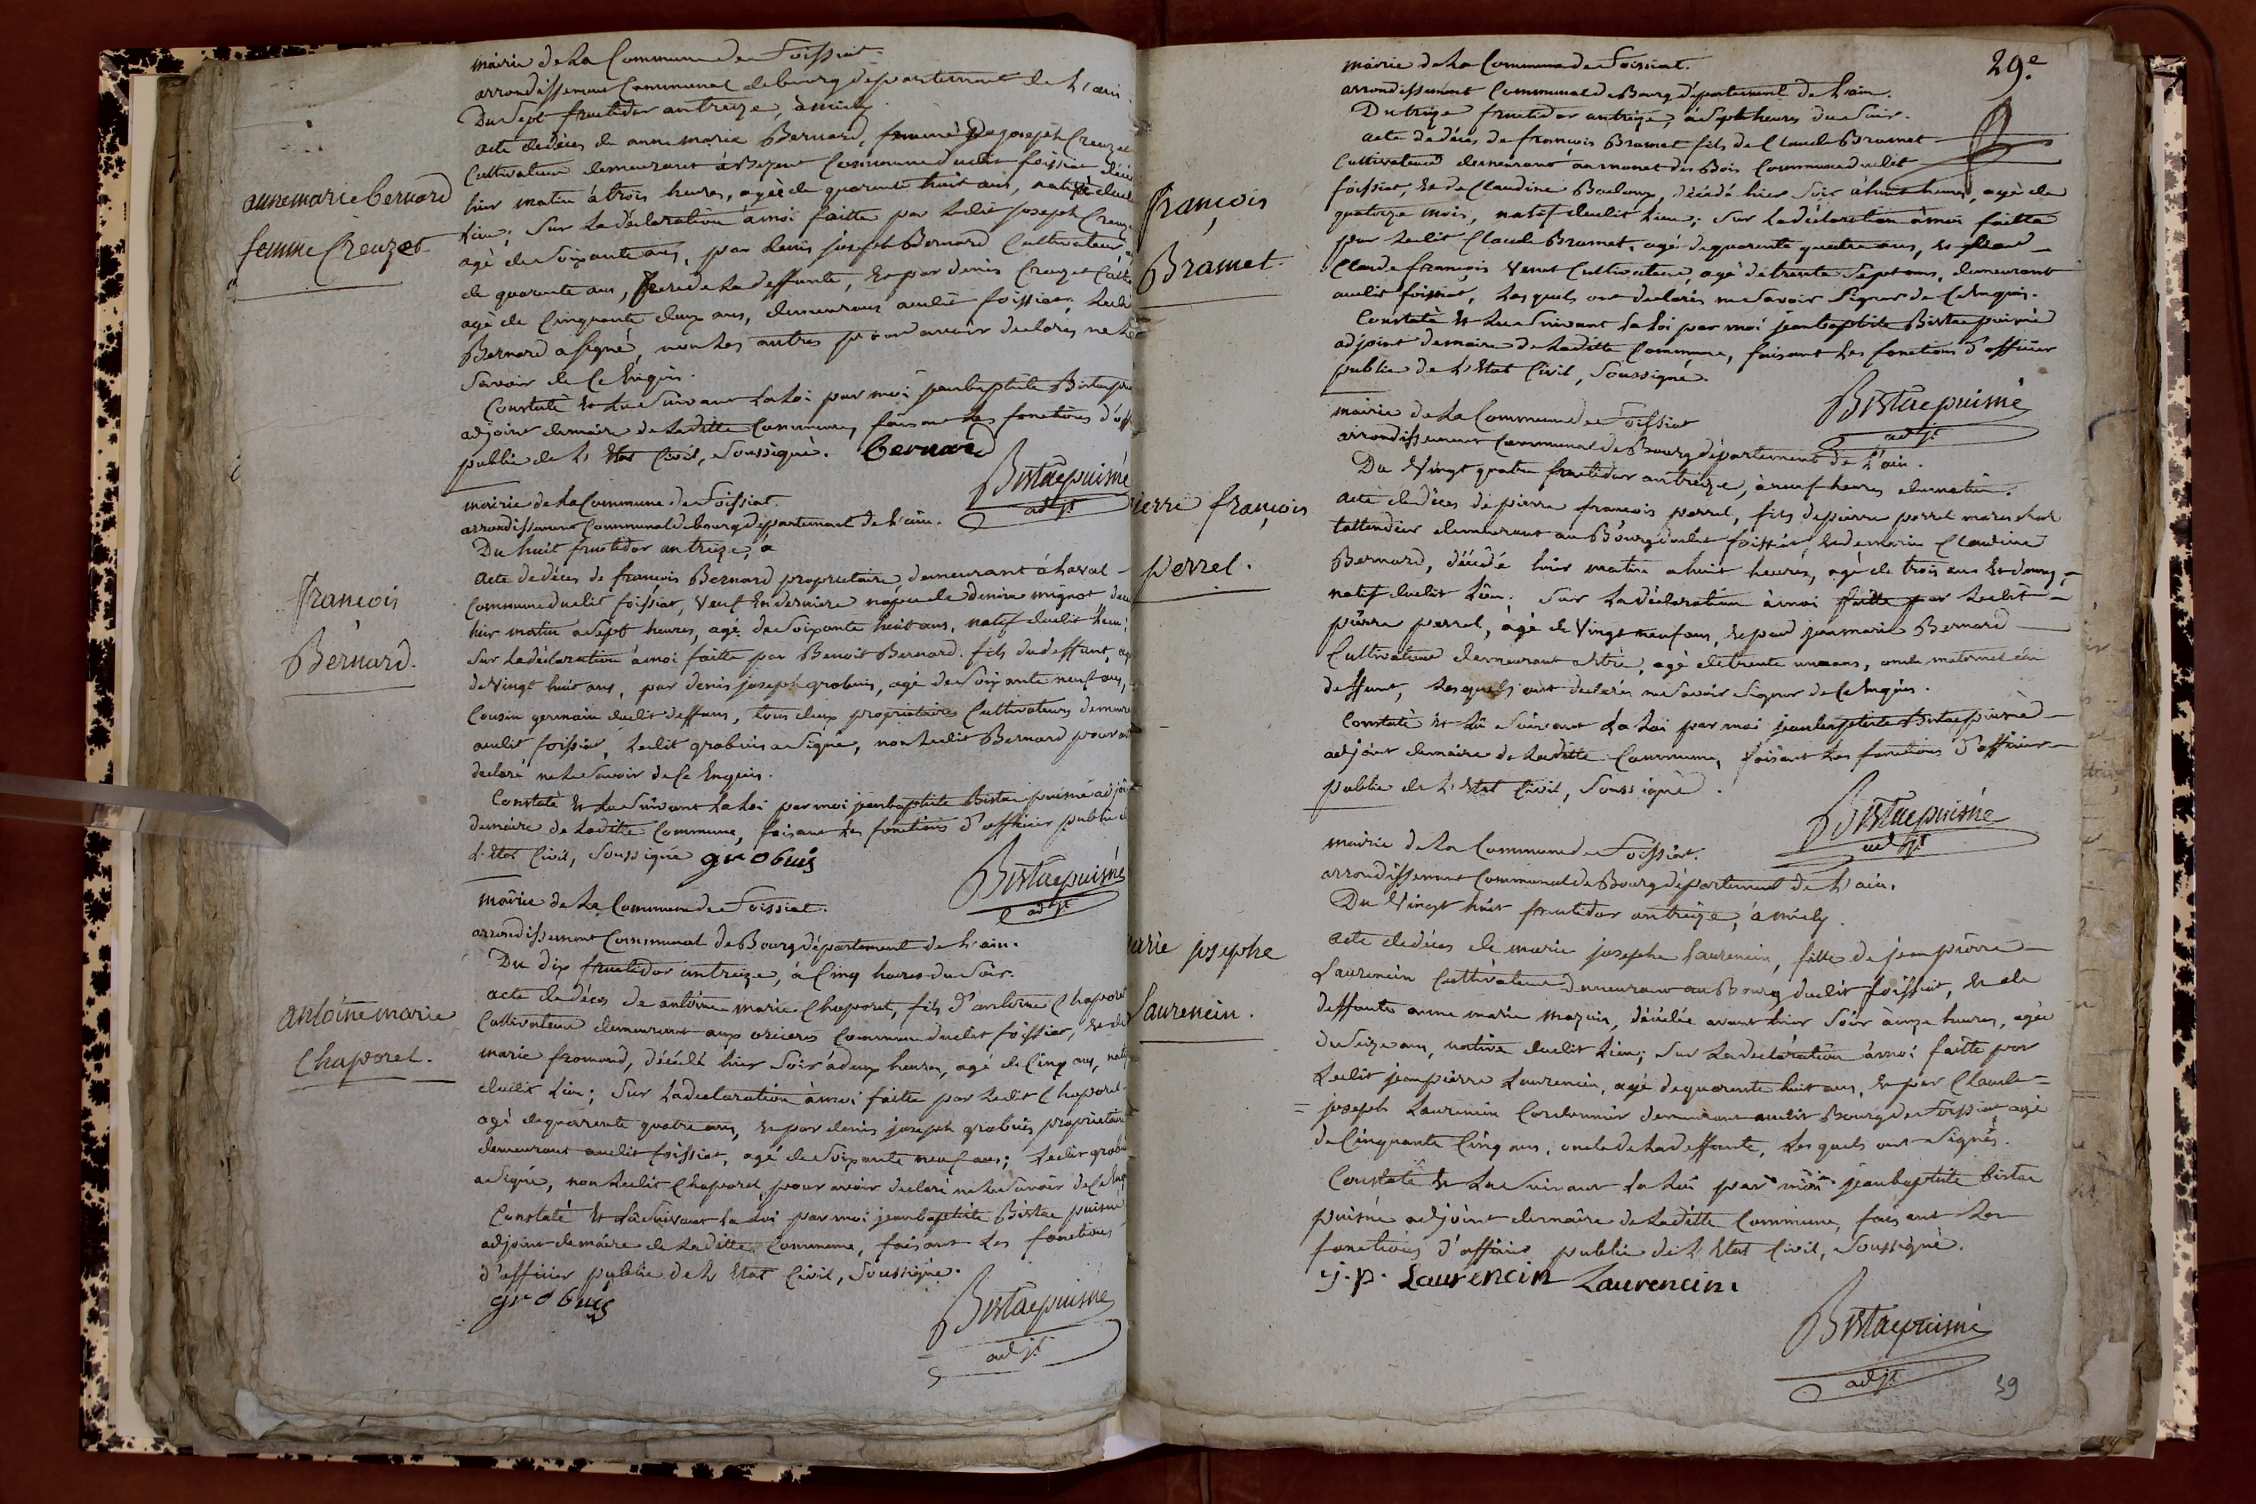 mairie de la Commune de Foissiat.
arrondissement Communal de bourg département de L'ain.
Du Sept fructidor an treize, à midy.
acte de décès de anne marie Bernard, femme de joseph Creuzet
Cultivateur demeurant à Commune dudit foissiat
hier matin à trois heures, agée de quarante huit ans, native dud
Lieu; Sur La déclaration à moi faitte par Ledit joseph Creuz
agé de Soixante ans, par denis joseph Bernard Cultivateur
de quarante ans, frere de La deffunte, et par denis Creuzet
agé de Cinquante deux ans, demeurans audit foissiat, Ledi
Bernard a Signé, non Les autres pour avoir declarés ne Le
Savoir de Ce Enquis.
Constaté et Lu Suivant La Loi par moi jeanbaptiste Bistac
adjoint demaire de Laditte Commune, faisant Les fonctions d'off
public de L'Etat Civil, Soussigné. bernard
Bistac puisné
adjt
annemarie bernard
femme Creuzet
mairie de La Commune de Foissiat.
arrondissement Communal de bourg département de L'ain.
Du huit fructidor an treize, à
acte de décès de francois Bernard proprietaire demeurant à Laval
Commune dudit foissiat, Veuf En derniere nopce de denise mignot
hier matin a Sept heures, agé de Soixante huit ans, natif dudit Lieu;
Sur La déclaration à moi faitte par Benoit Bernard fils du deffunt,
de Vingt huit ans, par denis joseph grobuis, agé de Soixante neuf ans,
Cousin germain dudit deffunt, tous deux proprietaires Cultivateurs demeur
audit foissiat, Ledit grobuis a Signé, non Ledit Bernard pour
declaré ne Le Savoir de Ce Enquis.
Constaté et Lu Suivant La Loi par moi jeanbaptiste Bistac puisné adjoi
demaire de Laditte Commune, faisant Les fonctions d'officier public d
L'Etat Civil, Soussigné grobuis
Bistac puisné
adjt
francois
Bernard.
mairie de La Commune de Foissiat.
arrondissement Communal de Bourg département de L'ain.
Du dix fructidor an treize, à Cinq heures du Soir.
acte de décès de antoine marie Chaporet, fils d'antoine Chaporet
Cultivateur demeurant aux Commune dudit foissiat, et de
marie fromond, décédé hier Soir à deux heures, agé de Cinq ans,
dudit Lieu; Sur La declaration à moi faitte par Ledit Chaporet
agé de quarente quatre ans, et par denis joseph grobuis proprietaire
demeurant audit foissiat, agé de Soixante neuf ans; Ledit grobui
a Signé, non Ledit Chaporet pour avoir declaré ne Le Savoir de Ce Enq
Constaté et Lu Suivant La Loi par moi jeanbaptiste Bistac puisné
adjoint demaire de Laditte Commune, faisant Les fonctions
d'officier public de L'Etat Civil, Soussigné.
grobuis
Bistac puisné
adjt
antoine marie
Chaporet.
29e
mairie de La Commune de Foissiat.
arrondissement Communal de Bourg département de L'ain.
Du treize fructidor an treize, à Sept heures du Soir.
acte de décès de françois Bramet fils de Claude Bramet
Cultivateur demeurant à manet des Bois Commune dudit
foissiat, et de Claudine décédé hier Soir à huit heures, agé de
quatorze mois, natif dudit Lieu; Sur La déclaration à moi faitte
par Ledit Claude Bramet, agé de quarente quatre ans, et
Claude françois Venet Cultivateur, agé de trente Sept ans, demeurant
audit foissiat, Lesquels ont declarés ne Savoir Signer de Ce Enquis.
Constaté et Lu Suivant La Loi par moi jeanbaptiste Bistac puisné
adjoint demaire de Laditte Commune, faisant Les fonctions d'officier
public de L'Etat Civil, Soussigné.
Bistac puisné
adjt
françois
Bramet.
mairie de La Commune de Foissiat
arrondissement Communal de Bourg département de L'ain.
Du Vingt quatre fructidor an treize, à neuf heures du matin.
acte de décès de pierre francois perret, fils de pierre perret marechal
tattendier demeurant au Bourg dudit foissiat, et de marie Claudine
Bernard, décédé hier matin a huit heures, agé de trois ans Et demy,
natif dudit Lieu. Sur La déclaration à moi faitte par Ledit
pierre perret, agé de Vingt neuf ans, et par jeanmarie Bernard
Cultivateur demeurant agé de trente un ans, oncle maternel du
deffunt, Lesquels ont declarés ne Savoir Signer de Ce Enquis.
Constaté et Lu Suivant La Loi par moi jeanbaptiste Bistac puisné
adjoint demaire de Laditte Commune, faisant Les fonctions d'officier
public de L'Etat Civil, Soussigné.
Bistac puisné
adjt
ierre françois
perret.
mairie de La Commune de Foissiat.
arrondissement Communal de Bourg département de L'ain.
Du Vingt huit fructidor an treize, à midy.
acte de décès de marie josephe Laurencin, fille de jeanpierre
Laurencin Cultivateur demeurant au Bourg dudit foissiat, et de
deffunte anne marie mazuir, décédée avant hier Soir à onze heures, agée
de Seize ans, native dudit Lieu; Sur La declaration à moi faitte par
Ledit jeanpierre Laurencin, agé de quarente huit ans, et par Claude
= joseph Laurencin Cordonnier demeurant audit Bourg de Foissiat agé
de Cinquante Cinq ans, oncle de La deffunte, Lesquels ont Signés.
Constaté et Lu Suivant La Loi par moi jeanbaptiste bistac
puisné adjoint demaire de Laditte Commune, faisant Les
fonctions d'officier public de L'Etat Civil, Soussigné.
j. p. Laurencin Laurencin.
Bistac puisné
adjt
arie josephe
Laurencin.
39